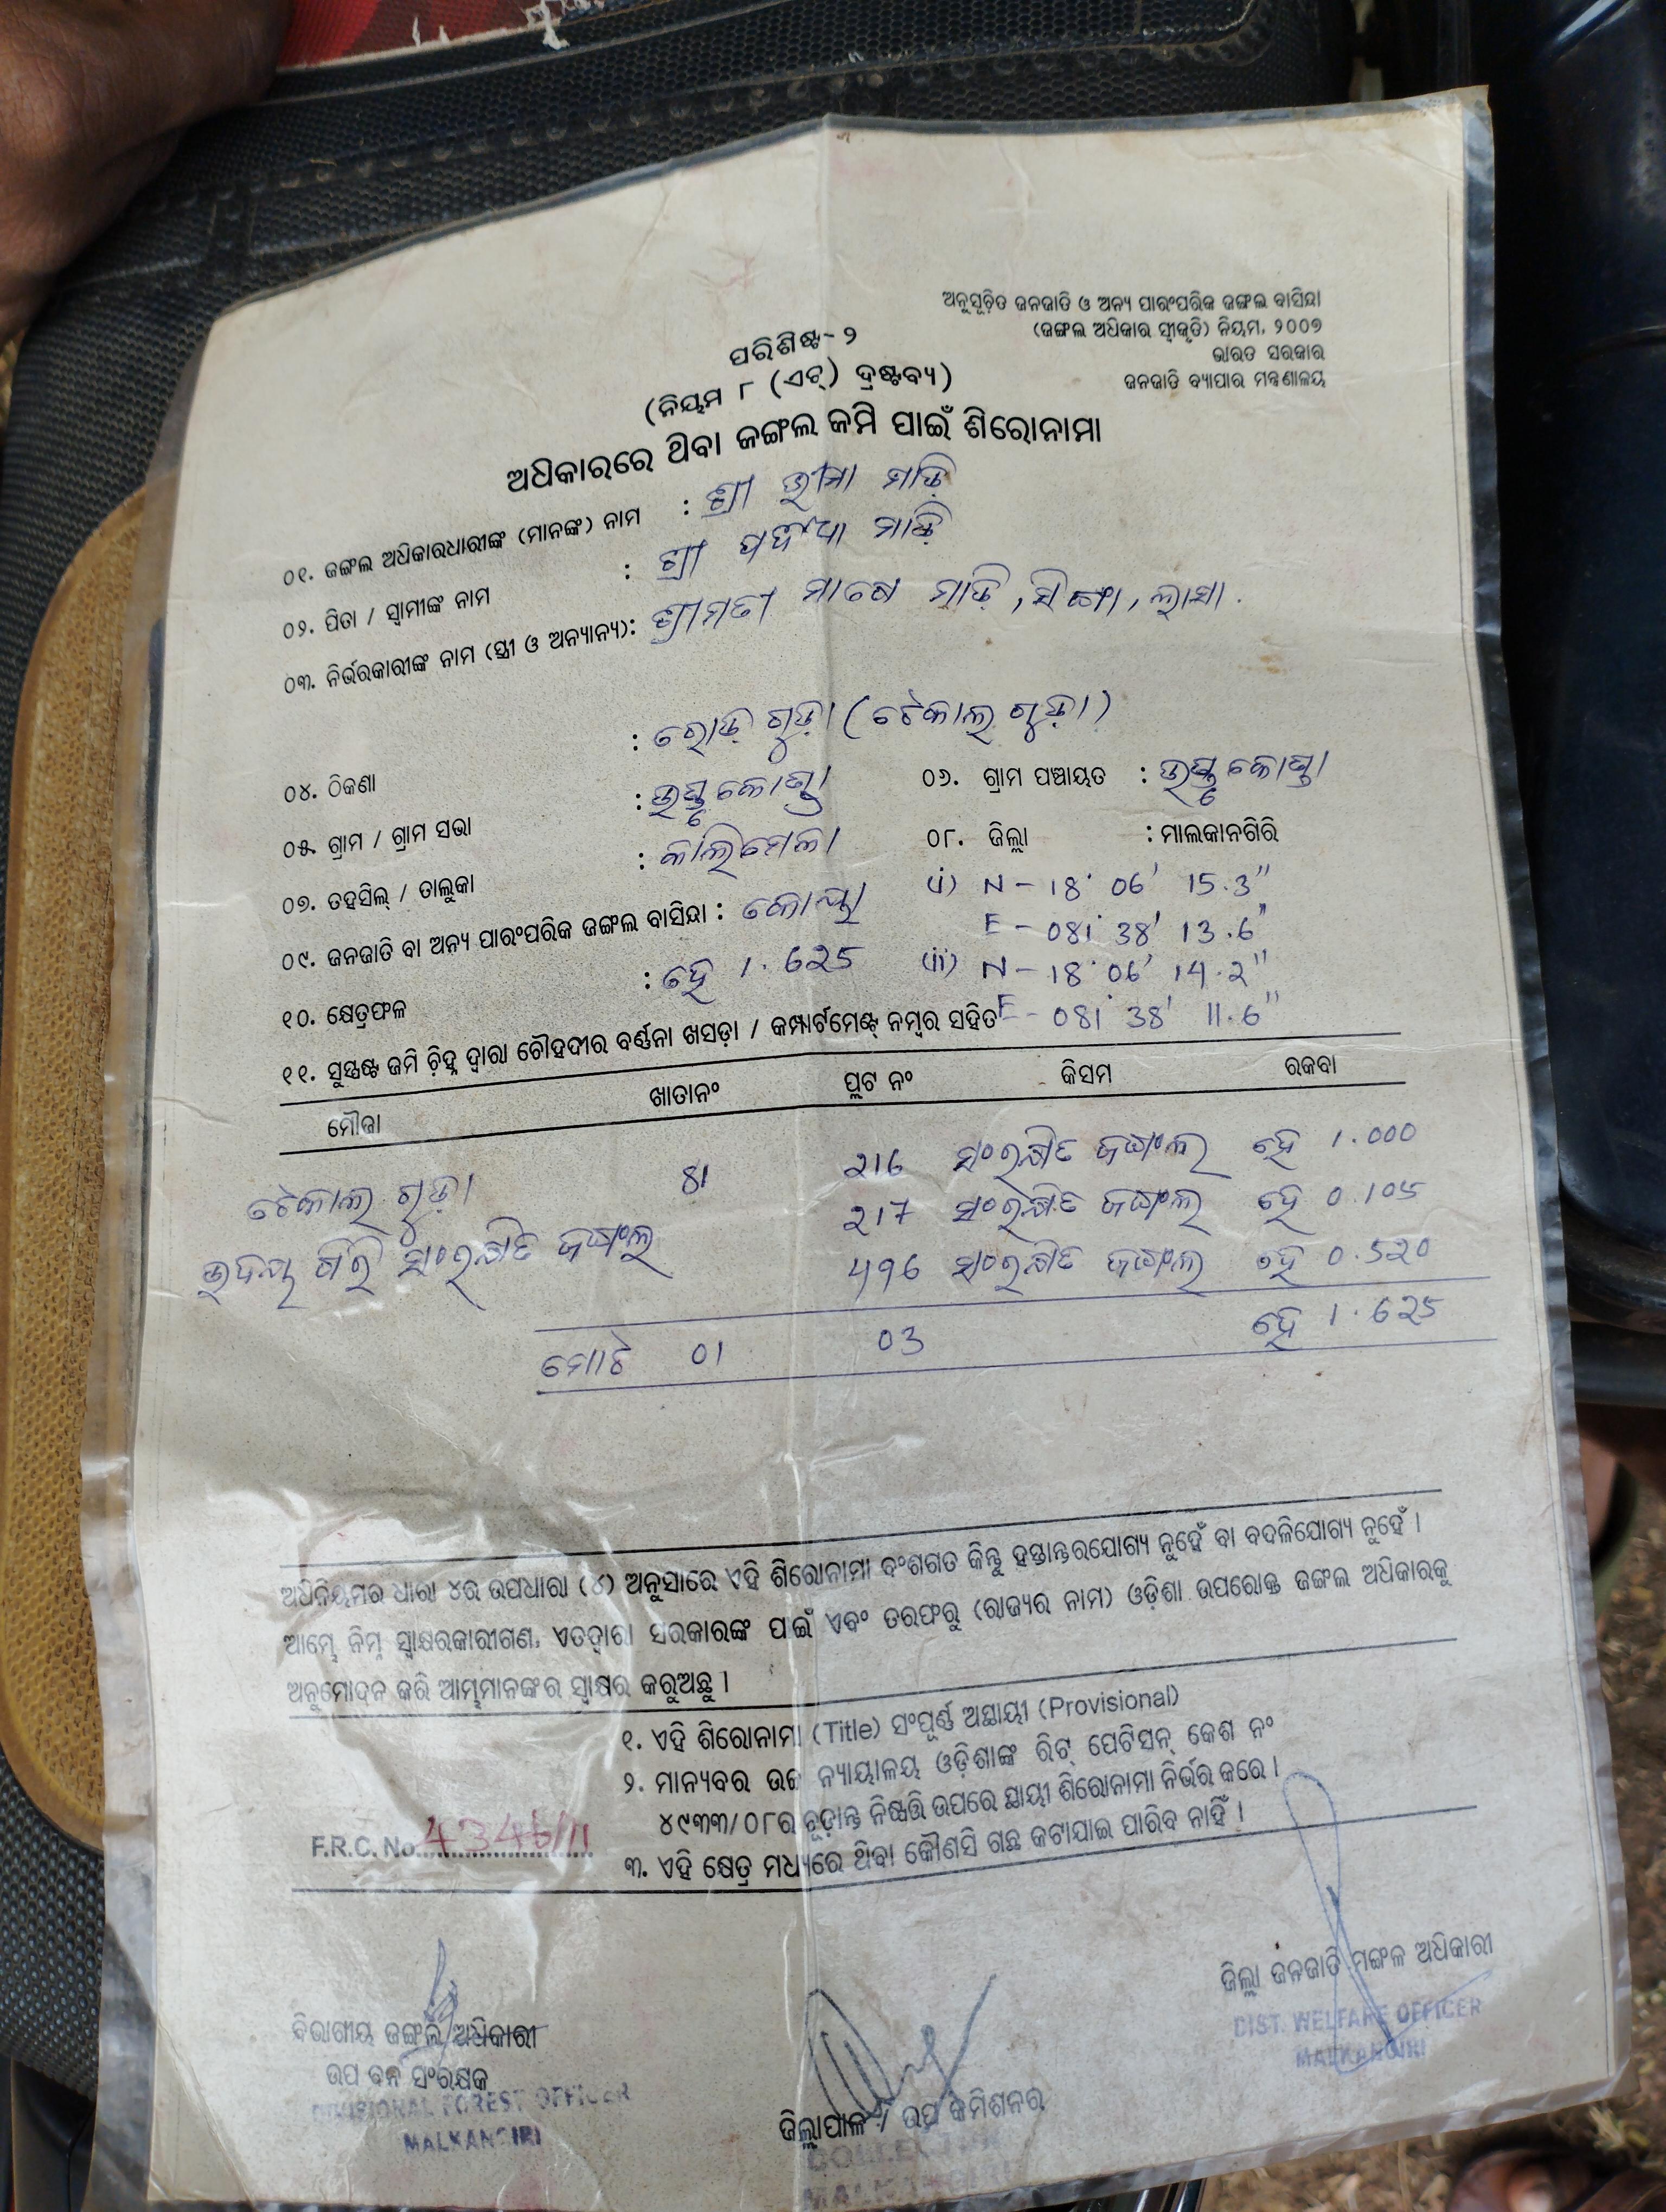 ଅନୁସୂଚିତ ଜନଜାତି ଓ ଅନ୍ୟ ପାରଂପରିକ ଜଙ୍ଗଲ ବାସିନ୍ଦା
(ଜଙ୍ଗଲ ଅଧିକାର ସ୍ୱୀକୃତି) ନିୟମ, ୨୦୦୭
ଭାରତ ସରକାର
ଜନଜାତି ବ୍ୟାପାର ମନ୍ତ୍ରଣାଳୟ
ପରିଶିଷ୍ଟ-୨
(ନିୟମ ୮ (ଏଚ୍) ଦ୍ରଷ୍ଟବ୍ୟ)
ଅଧିକାରରେ ଥିବା ଜଙ୍ଗଲ ଜମି ପାଇଁ ଶିରୋନାମା
୦୧. ଜଙ୍ଗଲ ଅଧିକାରଧାରୀଙ୍କ (ମାନଙ୍କ) ନାମ : ଶ୍ରୀ ଭୀମା ମାଡ଼ି
୦୨. ପିତା / ସ୍ୱାମୀଙ୍କ ନାମ : ଶ୍ରୀ ମାଡ଼ି
୦୩. ନିର୍ଭରକାରୀଙ୍କ ନାମ (ସ୍ତ୍ରୀ ଓ ଅନ୍ୟାନ୍ୟ): ଶ୍ରୀମତୀ ମାଡ଼ି,
୦୪. ଠିକଣା : ରୋଡ଼ ଗୁଡ଼ା (ଟେକାଲ ଗୁଡ଼ା)
୦୫. ଗ୍ରାମ / ଗ୍ରାମ ସଭା : ୦୬. ଗ୍ରାମ ପଞ୍ଚାୟତ :
୦୭. ତହସିଲ୍ / ତାଲୁକା : କାଲିମେଳା ୦୮. ଜିଲ୍ଲା : ମାଲକାନଗିରି
୦୯. ଜନଜାତି ବା ଅନ୍ୟ ପାରଂପରିକ ଜଙ୍ଗଲ ବାସିନ୍ଦା : କୋୟା (i) N - 18° 06' 15.3"
E - 081° 38' 13.6"
୧୦. କ୍ଷେତ୍ରଫଳ : ହେ 1.625 (ii) N - 18° 06' 14.2"
E - 081° 38' 11.6"
୧୧. ସୁସ୍ପଷ୍ଟ ଜମି ଚିହ୍ନ ଦ୍ୱାରା ଚୌହଦୀର ବର୍ଣ୍ଣନା ଖସଡ଼ା / କମ୍ପାର୍ଟମେଣ୍ଟ୍ ନମ୍ବର ସହିତ
ମୌଜା ଖାତାନଂ ପ୍ଲଟ ନଂ କିସମ ରକବା
ଟେକାଲ ଗୁଡ଼ା 81 216 ସଂରକ୍ଷିତ ଜଙ୍ଗଲ ହେ 1.000
217 ସଂରକ୍ଷିତ ଜଙ୍ଗଲ ହେ 0.105
ଉଦୟ ଗିରି ସଂରକ୍ଷିତ ଜଙ୍ଗଲ 496 ସଂରକ୍ଷିତ ଜଙ୍ଗଲ ହେ 0.520
ମୋଟ 01 03 ହେ 1.625
ଅଧିନିୟମର ଧାରା ୪ର ଉପଧାରା (୪) ଅନୁସାରେ ଏହି ଶିରୋନାମା ବଂଶଗତ କିନ୍ତୁ ହସ୍ତାନ୍ତରଯୋଗ୍ୟ ନୁହେଁ ବା ବଦଳିଯୋଗ୍ୟ ନୁହେଁ ।
ଆମ୍ଭେ ନିମ୍ନ ସ୍ୱାକ୍ଷରକାରୀଗଣ, ଏତଦ୍ୱାରା ସରକାରଙ୍କ ପାଇଁ ଏବଂ ତରଫରୁ (ରାଜ୍ୟର ନାମ) ଓଡ଼ିଶା ଉପରୋକ୍ତ ଜଙ୍ଗଲ ଅଧିକାରକୁ
ଅନୁମୋଦନ କରି ଆମ୍ଭମାନଙ୍କର ସ୍ୱାକ୍ଷର କରୁଅଛୁ ।
୧. ଏହି ଶିରୋନାମା (Title) ସଂପୂର୍ଣ୍ଣ ଅସ୍ଥାୟୀ (Provisional)
୨. ମାନ୍ୟବର ଉଚ୍ଚ ନ୍ୟାୟାଳୟ ଓଡ଼ିଶାଙ୍କ ରିଟ୍ ପେଟିସନ୍ କେଶ ନଂ
୪୯୩୩/୦୮ର ଚୂଡ଼ାନ୍ତ ନିଷ୍ପତ୍ତି ଉପରେ ସ୍ଥାୟୀ ଶିରୋନାମା ନିର୍ଭର କରେ ।
F.R.C. No. 4346/11
୩. ଏହି କ୍ଷେତ୍ର ମଧ୍ୟରେ ଥିବା କୌଣସି ଗଛ କଟାଯାଇ ପାରିବ ନାହିଁ ।
ଜିଲ୍ଲା ଜନଜାତି ମଙ୍ଗଳ ଅଧିକାରୀ
DIST. WELFARE OFFICER
MALKANGIRI
ବିଭାଗୀୟ ଜଙ୍ଗଲ ଅଧିକାରୀ
ଉପ ବନ ସଂରକ୍ଷକ
DIVISIONAL FOREST OFFICER
MALKANGIRI
ଜିଲ୍ଲାପାଳ / ଉପ କମିଶନର
COLLECTOR
MALKANGIRI